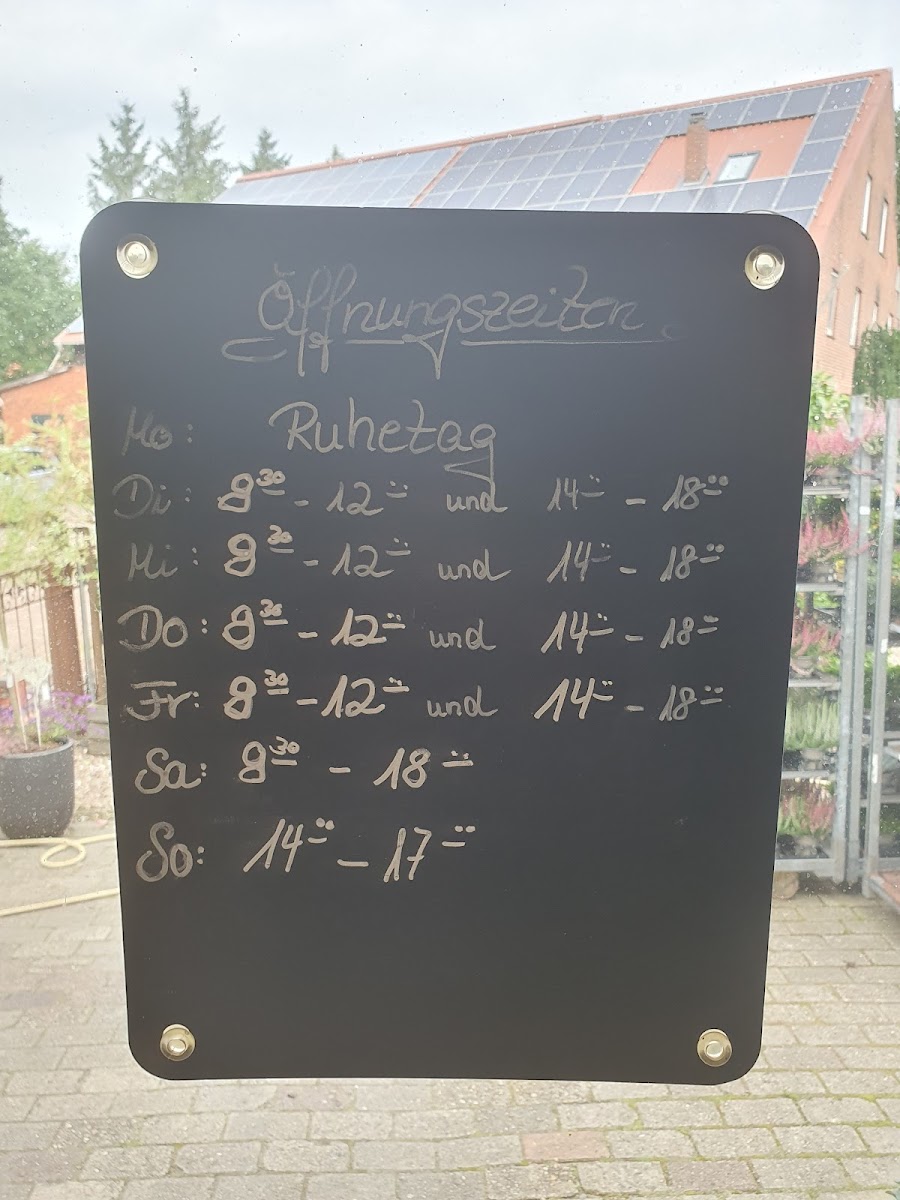 Öffnungszeiten
Mo: Ruhetag
Di: 8³⁰ - 12⁰⁰ und 14⁰⁰ - 18⁰⁰
Mi: 8³⁰ - 12⁰⁰ und 14⁰⁰ - 18⁰⁰
Do: 8³⁰ - 12⁰⁰ und 14⁰⁰ - 18⁰⁰
Fr: 8³⁰ - 12⁰⁰ und 14⁰⁰ - 18⁰⁰
Sa: 8³⁰ - 18⁰⁰
So: 14⁰⁰ - 17⁰⁰